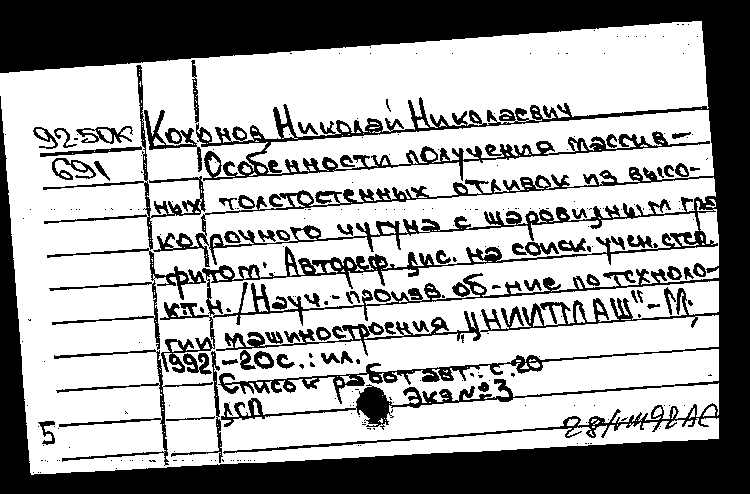 92-50к Коханов Николай Николаевич
691 Особенности получения массив-
ных толстостенных отливок из высо-
копрочного чугуна с шаровидным гра
фитом: Автореф. дис. на соиск. учен. степ.
к.т.н. / Науч.-произв. об-ние по техноло-
гии машиностроения "ЦНИИТМАШ".-М.,
1992.-20с.: ил.
Список работ авт.: с.20
ДСП Экз №3
5 28/VIII 92 АС